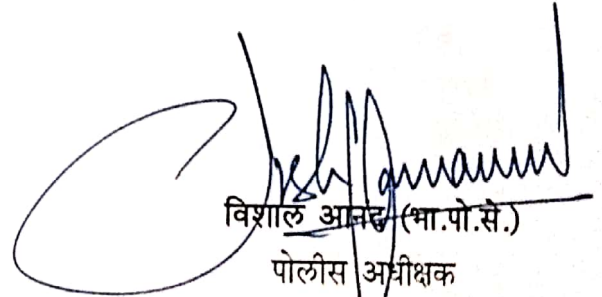 विशाल आनंद (भा.पो.से.)
पोलीस अधीक्षक